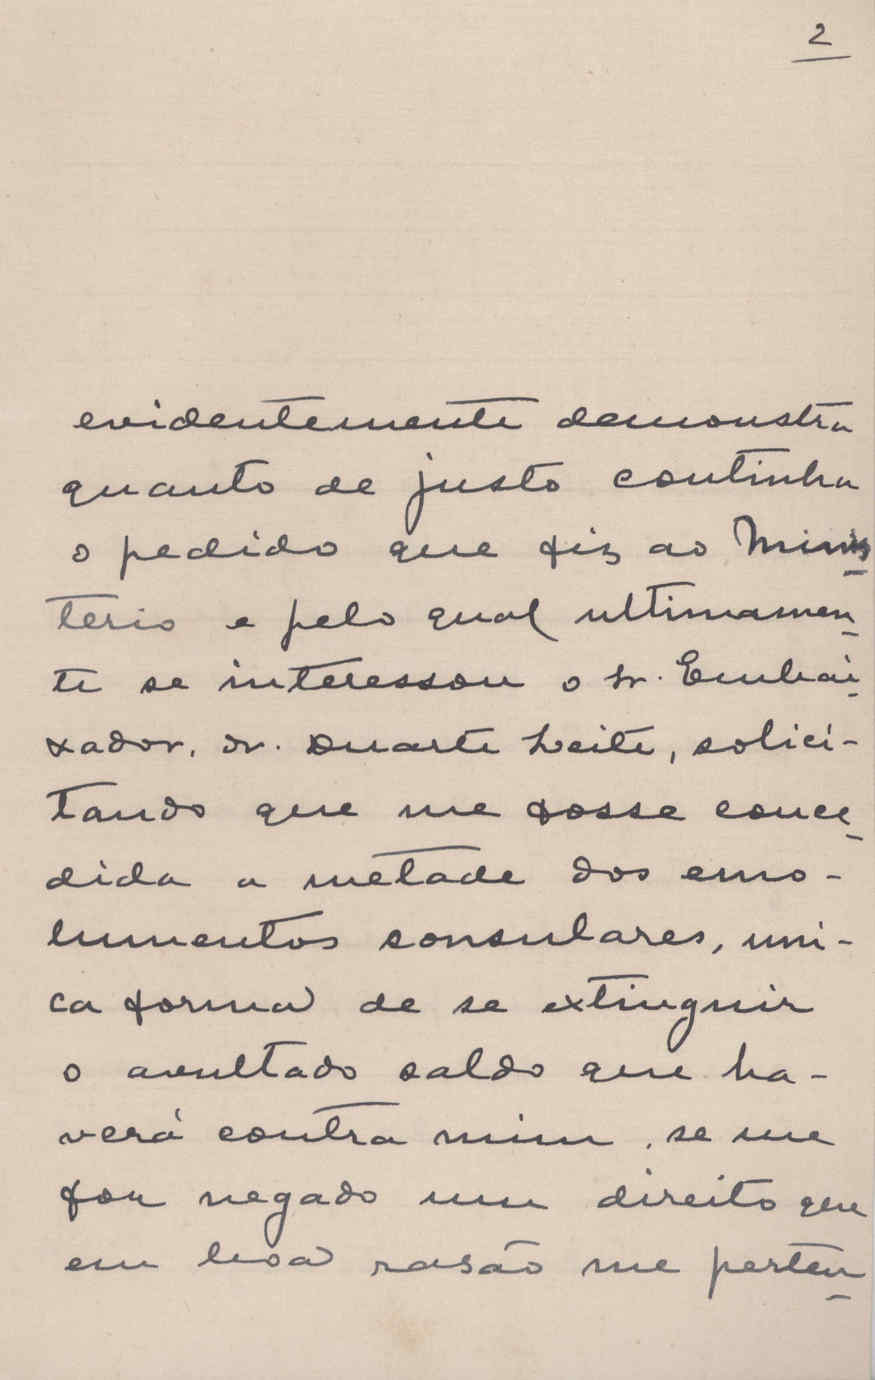 2
evidentemente demonstra
quanto de justo continha
o pedido que fiz ao Minis-
terio e pelo qual ultimamen-
te se interessou o sr. Embai-
xador, dr. Duarte Leite, solici-
tando que me fosse conce-
dida a metade dos emo-
lumentos consulares, uni-
ca forma de se extinguir
o avultado saldo que ha-
verá contra mim, se me
fôr negado um direito que
em boa rasão me perten-